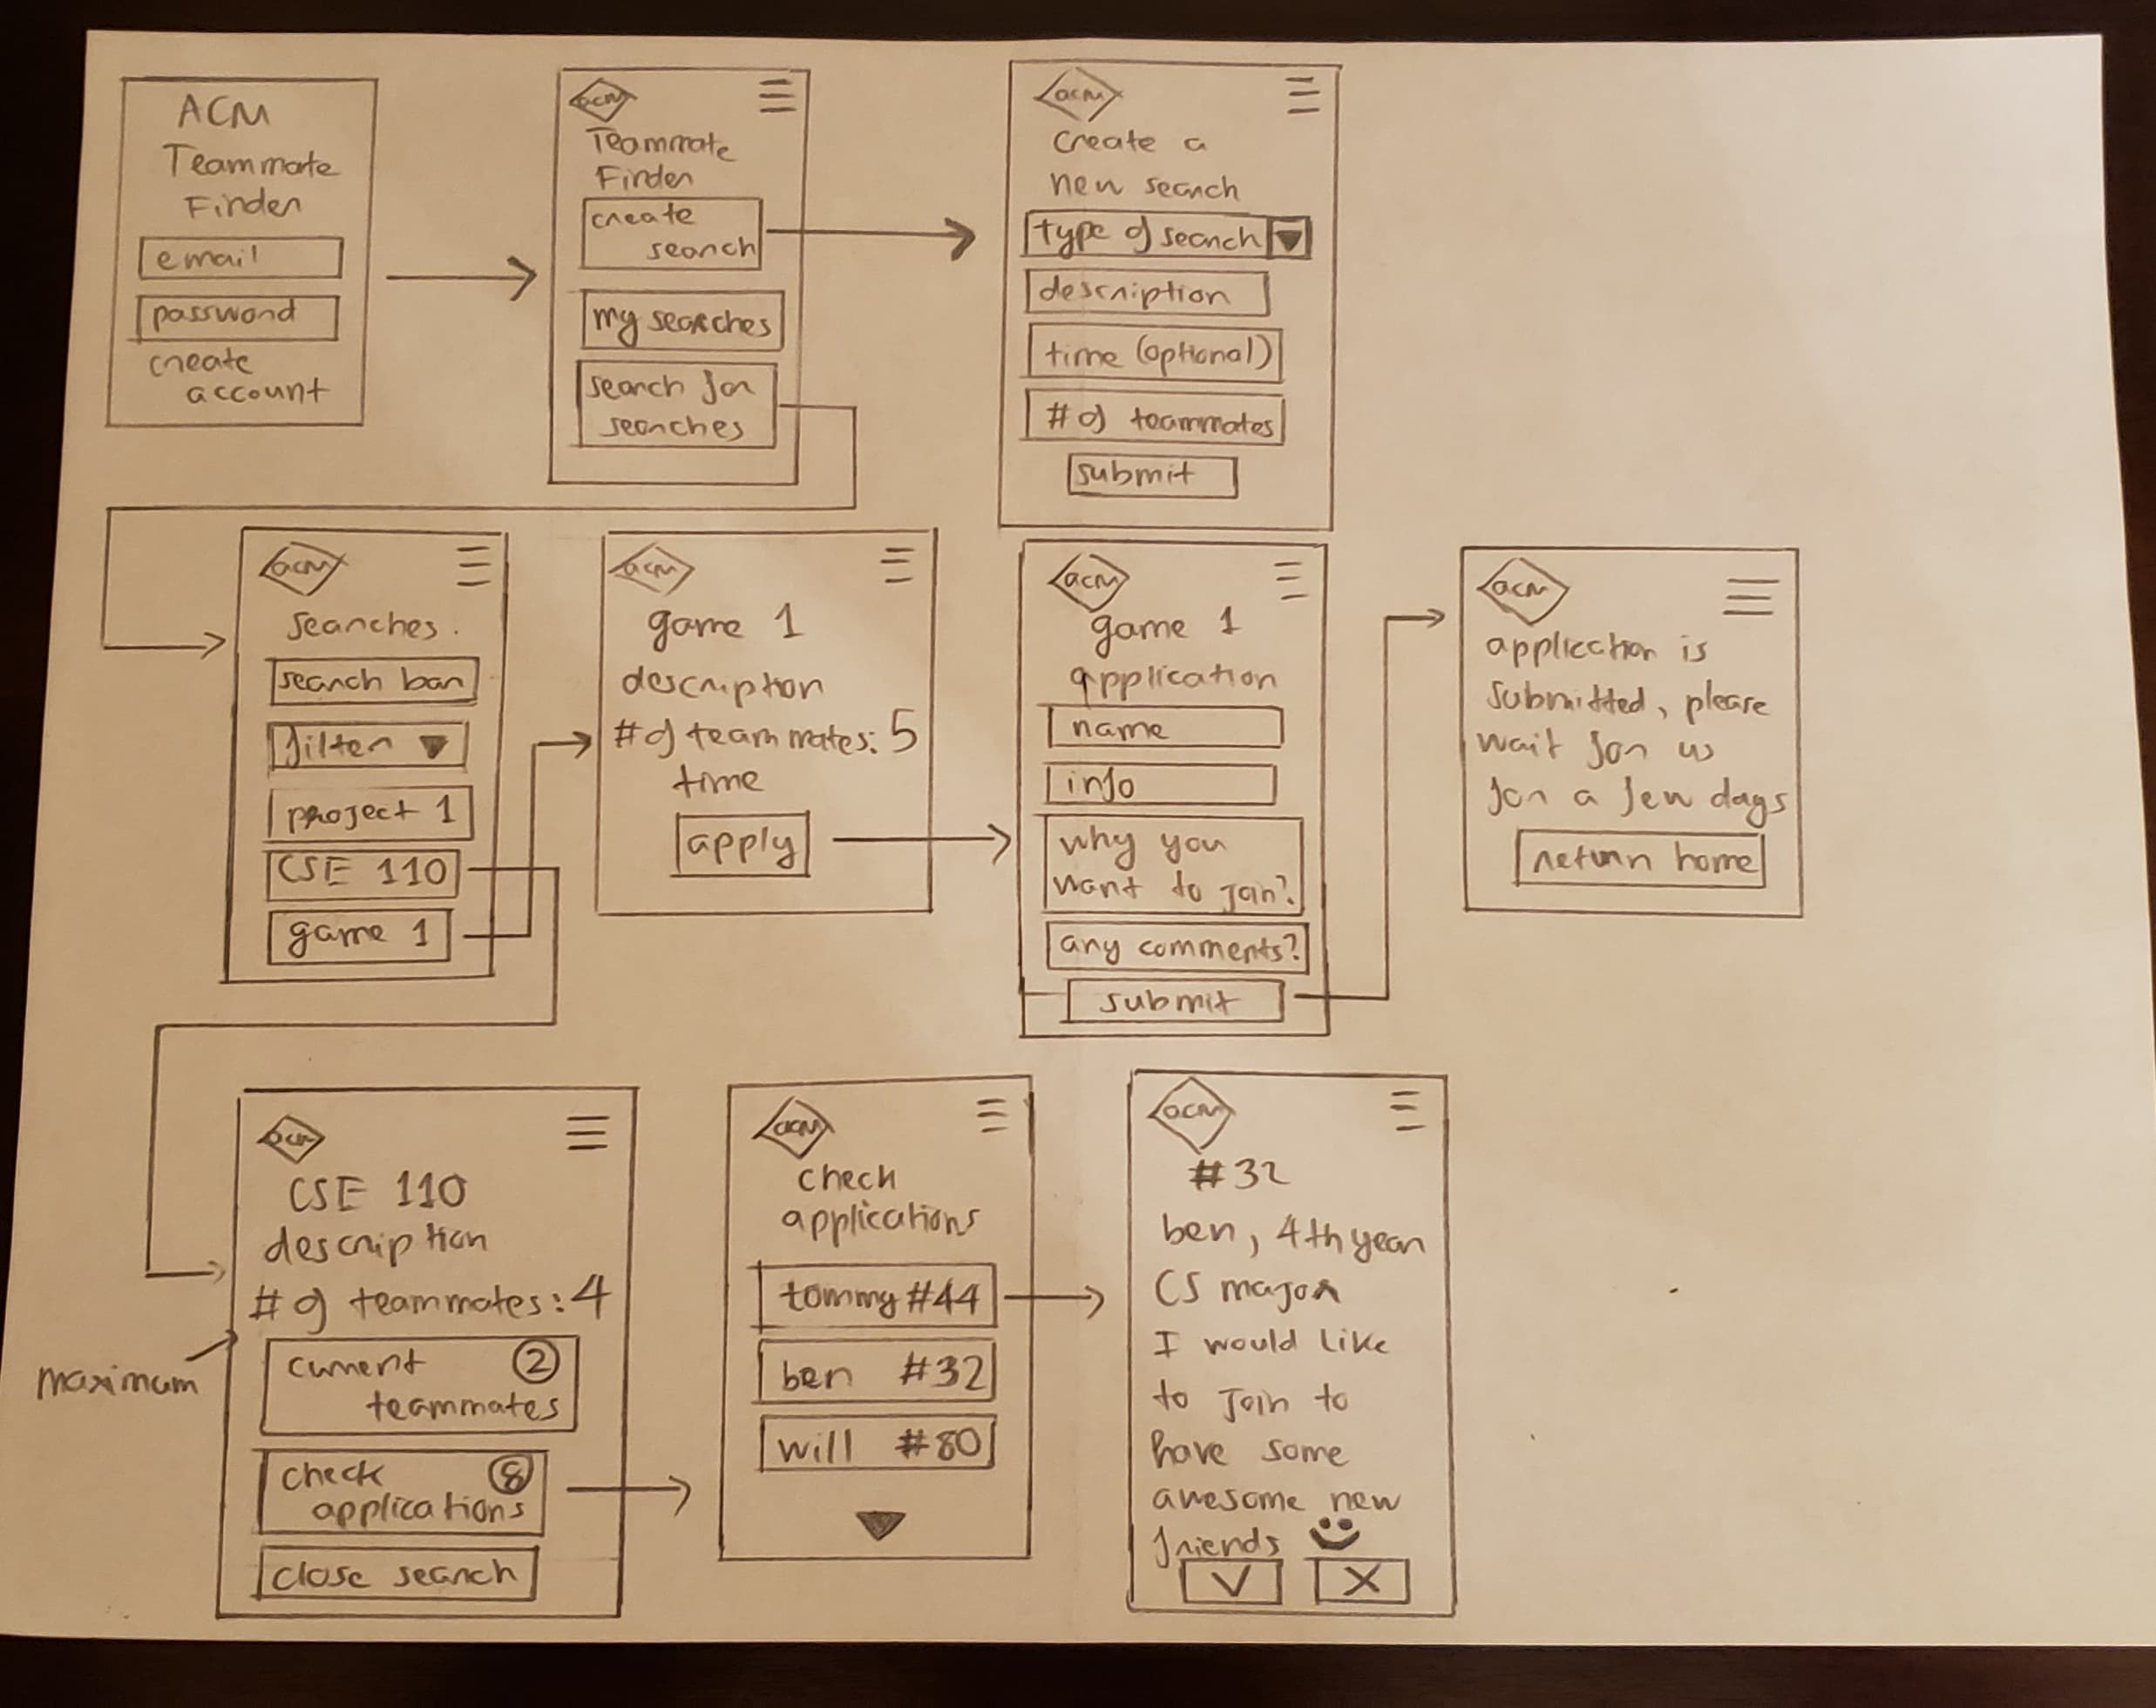 ACM
Teammate
Finder
email
password
create
account
acm
Teammate
Finder
create
search
my searches
search for
searches
acm
create a
new search
type of search
description
time (optional)
# of teammates
submit
acm
searches.
search bar
filter
project 1
CSE 110
game 1
acm
game 1
description
# of teammates: 5
time
apply
acm
game 1
application
name
info
why you
want to join?
any comments?
submit
acm
application is
submitted, please
wait for us
for a few days
return home
acm
CSE 110
description
# of teammates: 4
maximum
current 2
teammates
check 8
applications
close search
acm
check
applications
tommy #44
ben #32
will #80
acm
#32
ben, 4th year
CS major
I would like
to join to
have some
awesome new
friends
V X